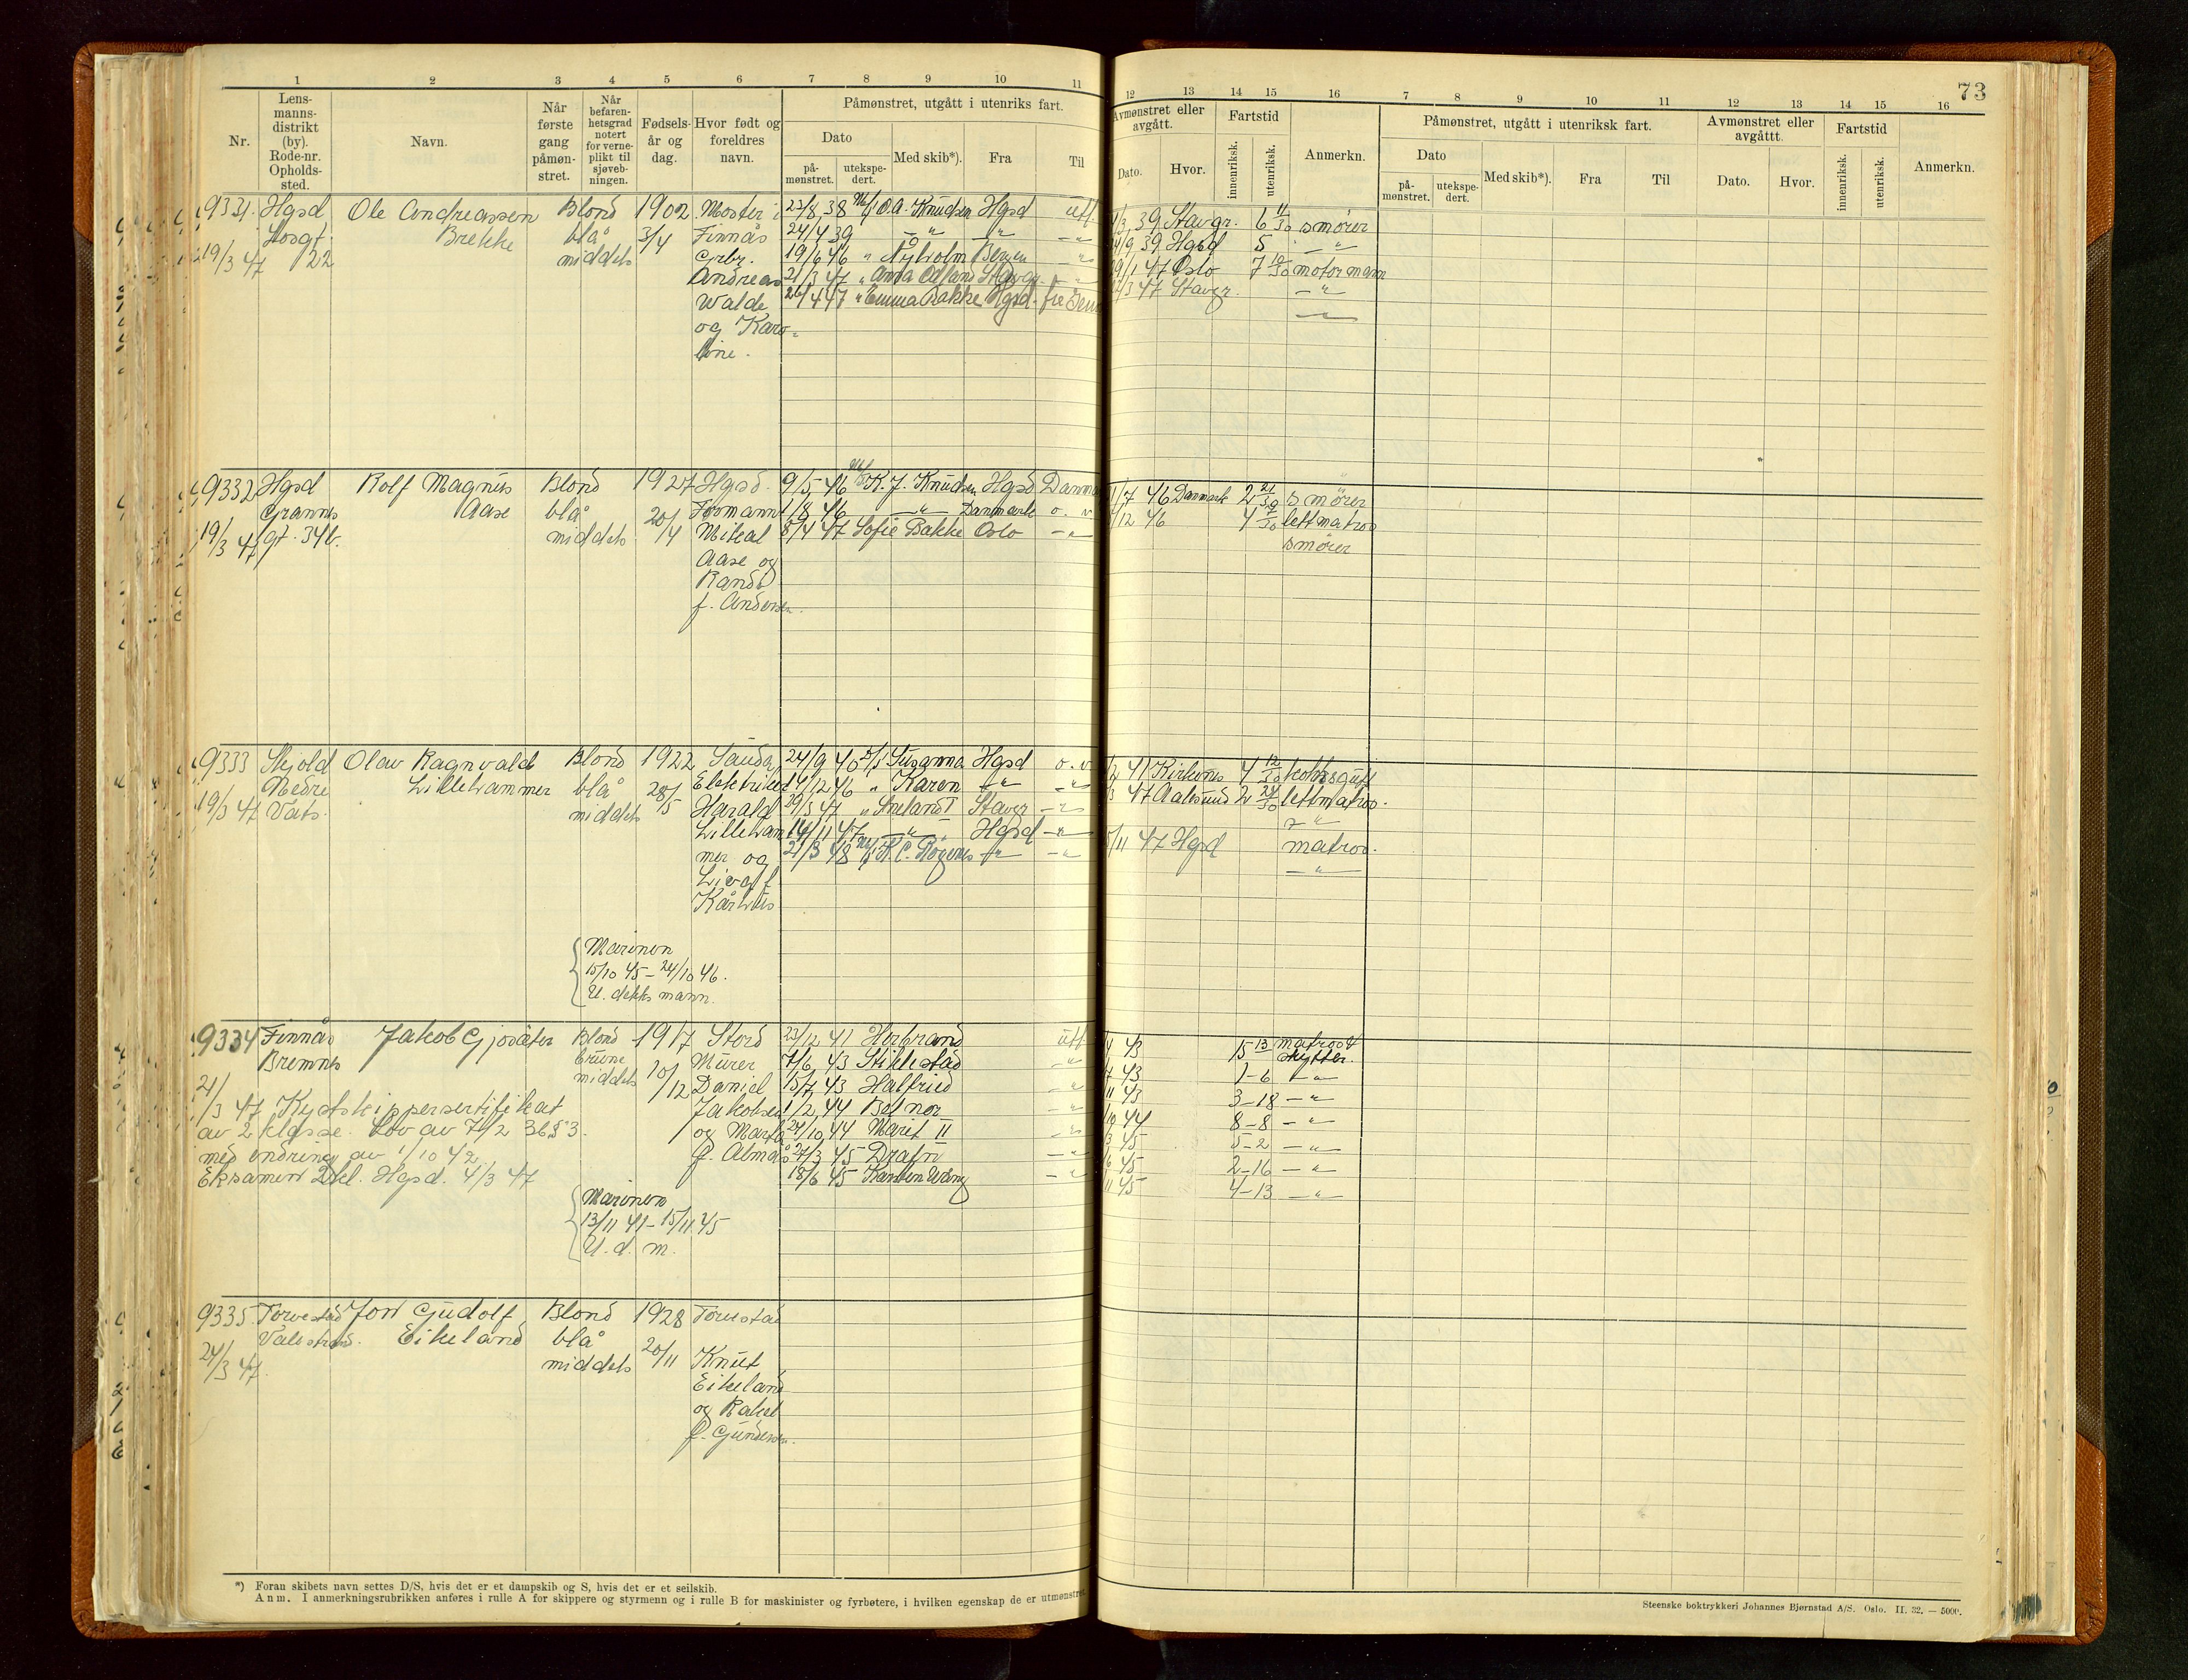 73
1 2 3 4 5 6 7 8 9 10 11
Nr.
Lens-
manns-
distrikt
(by).
Rode-nr.
Opholds-
sted.
Navn.
Når
første
gang
påmøn-
stret.
Når
befaren-
hetsgrad
notert
for verne-
plikt til
sjøveb-
ningen.
Fødsels-
år og
dag.
Hvor født og
foreldres
navn.
Påmønstret, utgått i utenriks fart.
Dato
på-
mønstret.
utekspe-
dert.
Med skib*).
Fra
Til
12 13 14 15 16 7 8 9 10 11 12 13 14 15 16
Avmønstret eller
avgått.
Dato.
Hvor.
Fartstid
innenriksk.
utenriksk.
Anmerkn.
Påmønstret, utgått i utenriksk fart.
Dato
på-
mønstret.
utekspe-
dert.
Med skib*).
Fra
Til
Avmønstret eller
avgåttt.
Dato.
Hvor.
Fartstid
innenriksk.
utenriksk.
Anmerkn.
9331. Hgsd Ole Andreassen Blond 1902 Moster i 23/8 38 M/S O.A. Knudsen Hgsd utf.
Brekke blå 3/4 Finnås 24/4 39 -"- -"- -"-
19/3 47 22 middels Grbr. 19/6 46 " Bergen -"-
Andreas 21/3 47 " Anna Stavgr. "
Walde 26/4 47 " Emma Bakke Hgsd.
og Karo-
line.
/3 39 Stavgr. 6 11/30 smører
/9 39 Hgsd 5 -"-
/1 47 Oslo 7 10/30 motormann
/3 47 Stavgr. -"-
-"-
9332 Hgsd Rolf Magnus Blond 1927 Hgsd. 9/5 46 M/S K. J. Knudsen Hgsd
Grannes Aase blå 20/4 Formann 1/8 46 -"- Danmark o. v.
19/3 47 gt. 34b. middels Mikal 8/4 47 Sofie Bakke Oslo -"-
Aase og
Randi
f. Andersen.
/7 46 Danmark 2 21/30 smører
/12 46 4 7/30 lettmatros
smører
9333 Skjold Olav Ragnvald Blond 1922 Sauda, 24/9 40 D/S Susanna Hgsd o.v.
Nedre Lillehammer blå 28/5 Elektriker 14/12 46 " Karen -"- -"-
19/3 47 Vats. middels Harald 29/3 47 " Sneland I Stavgr -"-
Lilleham 14/11 47 -"- Hgsd -"-
mer og 21/3 48 M/S H. C. Rogenes -"- -"-
Liva f
Kårhus
41 Kirkenes 4 12/30
/3 47 Aalesund 2 24/30 lettmatros.
-"-
/11 47 Hgsd matros.
-"-
Marinen
15/10 45 - 24/10 46.
U. dekksmann.
9334 Finnås Jakob Gjosæter Blond 1917 Stord 23/12 41 Herbrand utf
Bremnes brune 10/12 Murer 7/6 43 Stiklestad -"-
middels Daniel 15/7 43 Halfried -"-
21/3 47 Kystskippersertifikat Jakobsen 1/2 44 Belnor -"-
av 2 klasse. Lov av 7/2 36 § 3. og Marta 24/10 44 Marit II -"-
med endring av 1/10 42 f. Almås 27/3 45 Drafn -"-
Eksamen Hgsd. 4/3 47 18/6 45 Karsten Wang -"-
43 15 13 matros &
skytter.
43 1-6 -"-
/11 43 3-18 -"-
/10 44 8-8 -"-
/3 45 5-2 -"-
/6 45 2-16 -"-
/11 45 4-13 -"-
Marinen
13/11 41 - 15/11 45
U. d. m.
9335. Torvestad Jon Gudolf Blond 1928 Torvestad
Eikeland blå
24/3 47. middels 20/11 Knut
Eikeland
og Rakel
f. Gundersen.
*) Foran skibets navn settes D/S, hvis det er et dampskib og S, hvis det er et seilskib.
Anm. I anmerkningsrubrikken anføres i rulle A for skippere og styrmenn og i rulle B for maskinister og fyrbøtere, i hvilken egenskap de er utmønstret
Steenske boktrykkeri Johannes Bjørnstad A/S. Oslo. II. 32. — 5000.